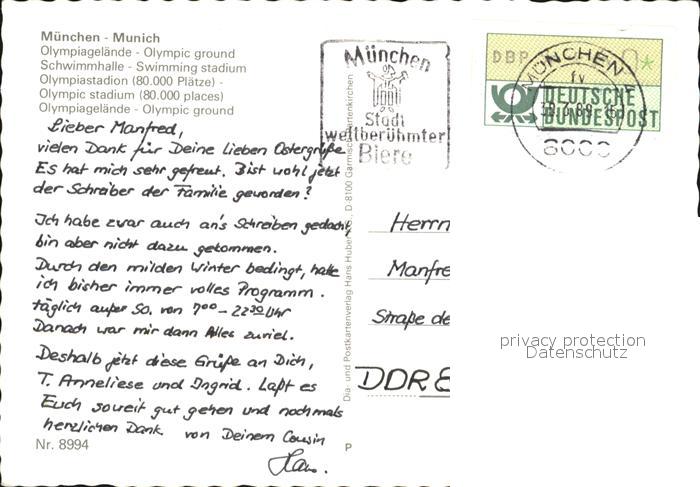 München - Munich
Olympiagelände - Olympic ground
Schwimmhalle - Swimming stadium
Olympiastadion (80.000 Plätze) -
Olympic stadium (80.000 places)
Olympiagelände - Olympic ground
Lieber Manfred,
vielen Dank für Deine lieben Ostergrüße
Es hat mich sehr gefreut. Bist wohl jetzt
der Schreiber der Familie geworden?
Ich habe zwar auch an's Schreiben gedacht,
bin aber nicht dazu gekommen.
Durch den milden Winter bedingt, hatte
ich bisher immer volles Programm.
täglich außer So. von 7⁰⁰ - 22³⁰ Uhr
Danach war mir dann Alles zuviel.
Deshalb jetzt diese Grüße an Dich,
T. Anneliese und Ingrid. Laßt es
Euch soweit gut gehen und nochmals
herzlichen Dank. von Deinem Cousin
Nr. 8994
P
Dia- und Postkartenverlag Hans Huber D-8100 Garmisch-Partenkirchen
München
Stadt
weltberühmter
Biere
DBP
MÜNCHEN
fv
DEUTSCHE
BUNDESPOST
8000
Herrn
Manfre
Straße de
DDR
privacy protection
Datenschutz